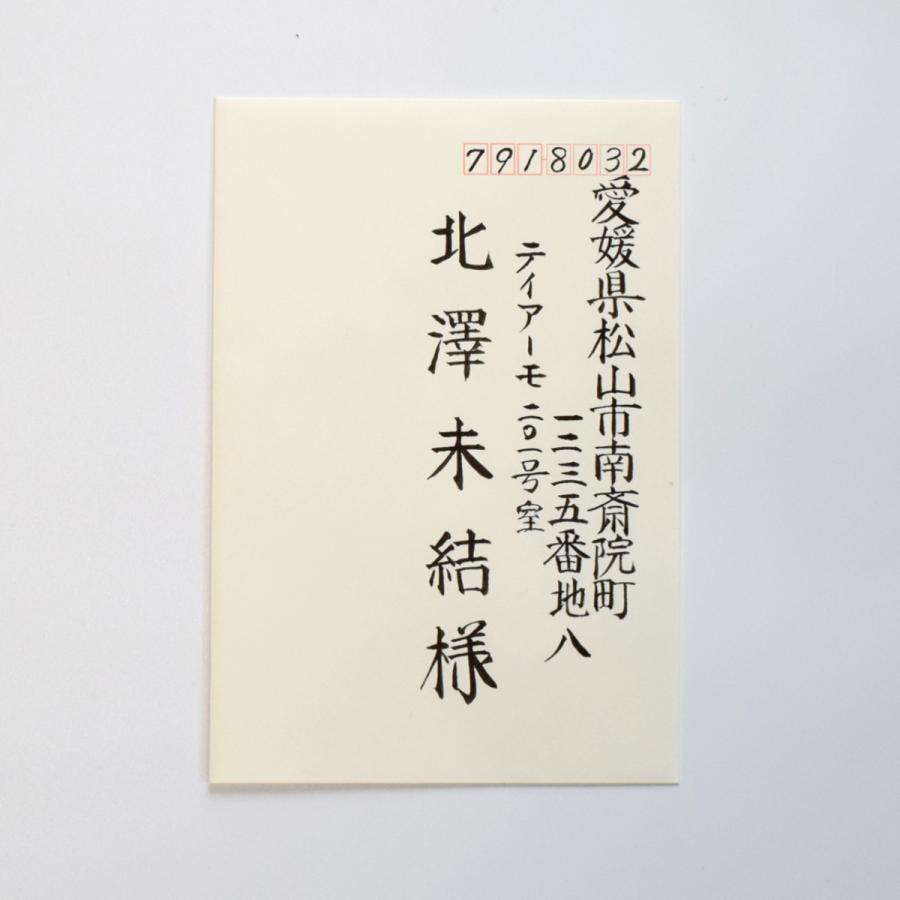 7918032
愛媛県松山市南斎院町
一二三五番地八
ティアーモ二〇一号室
北澤未結様